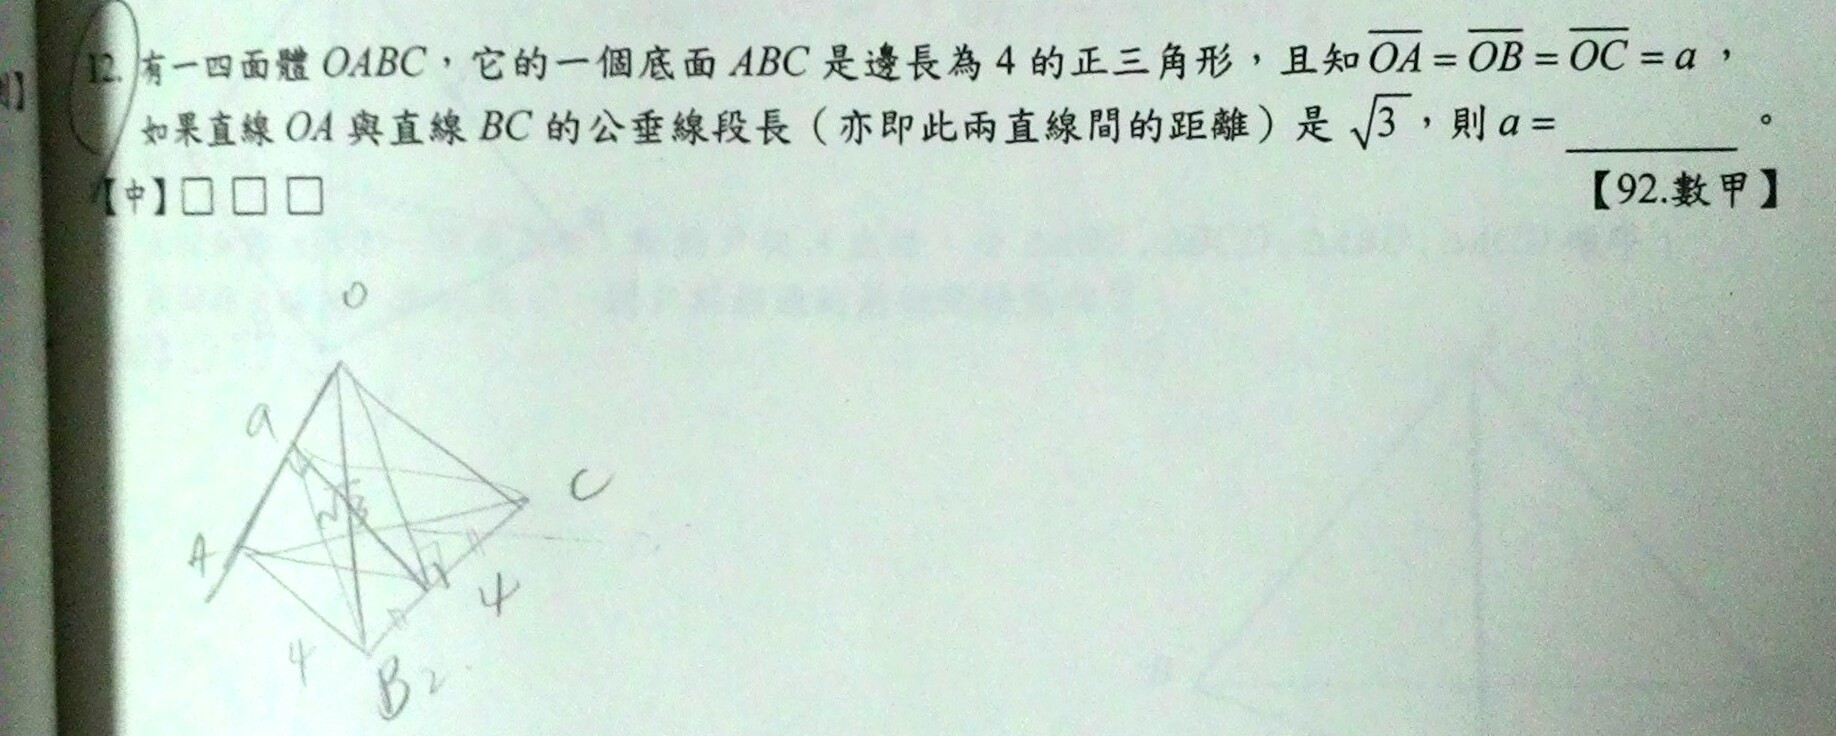 12. 有一四面體 OABC，它的一個底面 ABC 是邊長為 4 的正三角形，且知 $\overline{OA}=\overline{OB}=\overline{OC}=a$，
如果直線 OA 與直線 BC 的公垂線段長（亦即此兩直線間的距離）是 $\sqrt{3}$，則 a = ______。
【中】□ □ □
【92.數甲】
O
a
C
√3
A
4
4
B 2